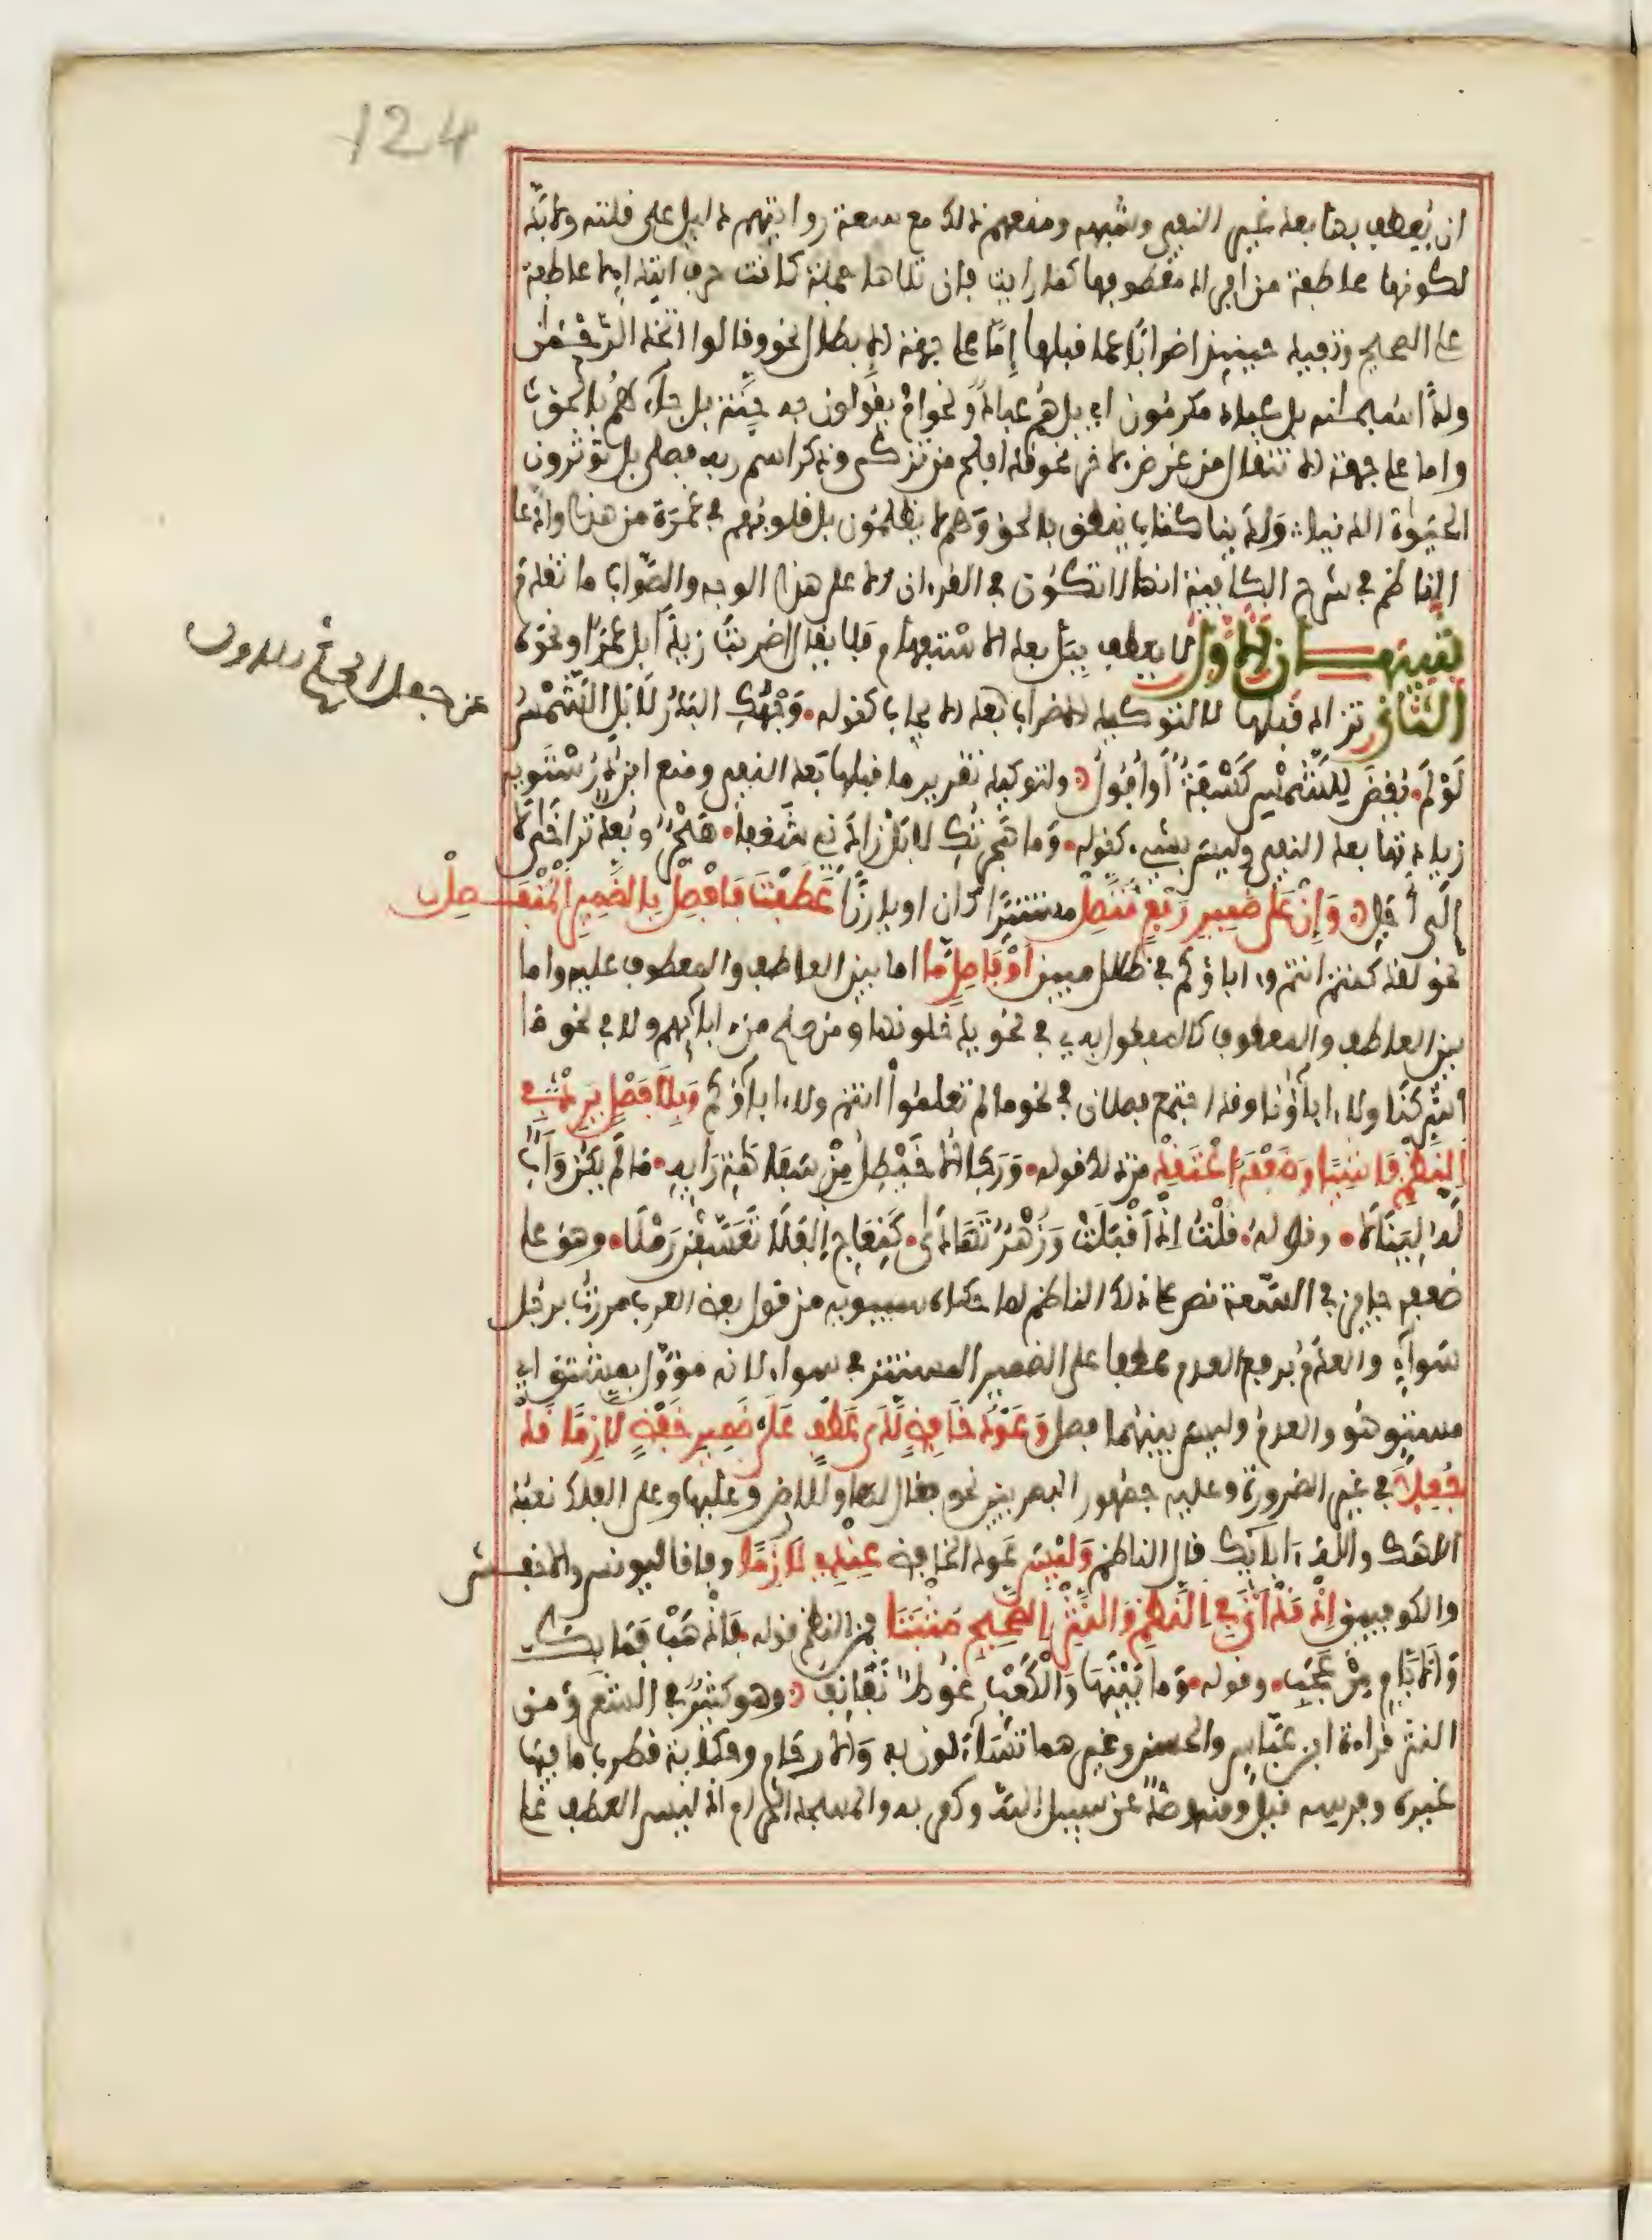 124
ان يعطف بها بعد غير النفي وشبهه ومنعهم ذلك مع سعة روايتهم دليل على قلته ولا بد
لكونها عاطفة من افراد معطوفها كما رايت فان تلاها جملة كانت حرف ابتداء لا عاطفة
على الصحيح وتفيد حينئذ اضرابا عما قبلها إمّا على جهة الابطال نحو وقالوا اتخذ الرحمٰن
ولدًا سبحانه بل عباد مكرمون اي بل هم عباد ونحو ام يقولون به جِنّة بل جاءهم بالحق
واما على جهة الانتقال من غرض لاخر نحو قد افلح من تزكى وذكر اسم ربه فصلى بل تؤثرون
الحيوٰة الدنيا ولدينا كتاب ينطق بالحق وهم لا يظلمون بل قلوبهم في غمرة من هذا وادعا
الناظم في شرح الكافية انها لا تكون في القرءان الا على هذا الوجه والصواب ما تقدم
تنبيهــان الاول لا يعطف ببل بعد الاستفهام فلا يقال اضربت زيدًا بل عمرًا ونحوه
الثاني تزاد قبلها لا لتوكيد الاضراب بعد الايجاب كقوله • وَجْهُكِ البَدْرُ لَا بَلِ الشَّمْسُ
لَوْ لَمْ • يُقْضَ لِلشَّمْسِ كَسْفَةٌ أَوْ أُفُولُ ولتوكيد تقرير ما قبلها بعد النفي ومنع ابن دُرُسْتَوَيه
زيادتها بعد النفي وليس بشيء كقوله • وَمَا هَجَرْتُكِ لَا بَلْ زَادَنِي شَغَفًا • هَجْرٌ وبُعْد تراخى لا
إلى أجل وَإِنْ عَلَى ضَمِيرِ رَفْعٍ مُتَّصِلْ مستترًا كان او بارزًا عَطَفْتَ فَافْصِلْ بِالضَّمِيرِ الْمُنْفَصِلْ
نحو لقد كنتم انتم وءاباؤكم في ضلال مبين اوْ فَاصِلٍ مَّا اما بين العاطف والمعطوف عليه واما
بين العاطف والمعطوف كالمفعول به في نحو يدخلونها ومن صلح من ءابائهم ولا في نحو ما
اشركنا ولا ءاباؤنا وقد اجتمع فصلان في نحو ما لم تعلموا انتم ولا ءاباؤكم وَبِلَا فَصْلٍ يَرِدْ في
النَّظْمِ فَاشِيًا وَضَعْفَهُ اعْتَقِدْ من ذلك قوله • وَرَجَا الأُخَيْطِلُ مِنْ سَفَاهَةِ رَأْيِهِ • مَا لَمْ يَكُنْ وَأَبٌ
لَهُ لِيَنَالَا • وقوله • قُلْتُ اِذْ أَقْبَلَتْ وَزُهْرٌ تَهَادَى • كَنِعَاجِ الفَلَا تَعَسَّفْنَ رَمْلَا • وهو على
ضعفه جايز في السعة نص على ذلك الناظم لما حكاه سيبويه من قول بعض العرب مررت برجل
سَواءٍ والعدمُ برفع العدم عطفا على الضمير المستتر في سواء لانه مؤول بمشتق اي
مستو هو والعدم وليس بينهما فصل وَعَوْدُ خَافِضٍ لَدَى عَطْفٍ عَلَى ضَمِيرِ خَفْضٍ لَازِمًا قَدْ
جُعِلَا في غير الضرورة وعليه جمهور البصريين نحو فقال لها وللارض وعليها وعلى الفلك نعبد
الٰهك واله ءابائك قال الناظم وَلَيْسَ عود الخافض عِنْدِي لَازِمًا وفاقا ليونس والاخفش
والكوفيين اِذْ قَدْ أَتَى فِي النَّظْمِ وَالنَّثْرِ الصَّحِيحِ مُثْبَتَا فمن النظم قوله • فَاذْهَبْ فَمَا بِكَ
وَالأَيَّامِ مِنْ عَجَبِ • وقوله • وَمَا بَيْنَهَا وَالْكَعْبِ غَوْطٌ نَفَانِفُ وهو كثير في الشعر ومن
النثر قراءة ابن عباس والحسن وغيرهما تَسَّاءَلون به والارحام وحكاية قطرب ما فيها
غيره وفرسه قيل ومنه وصدٌّ عن سبيل الله وكفر به والمسجد الحرام اذ ليس العطف على